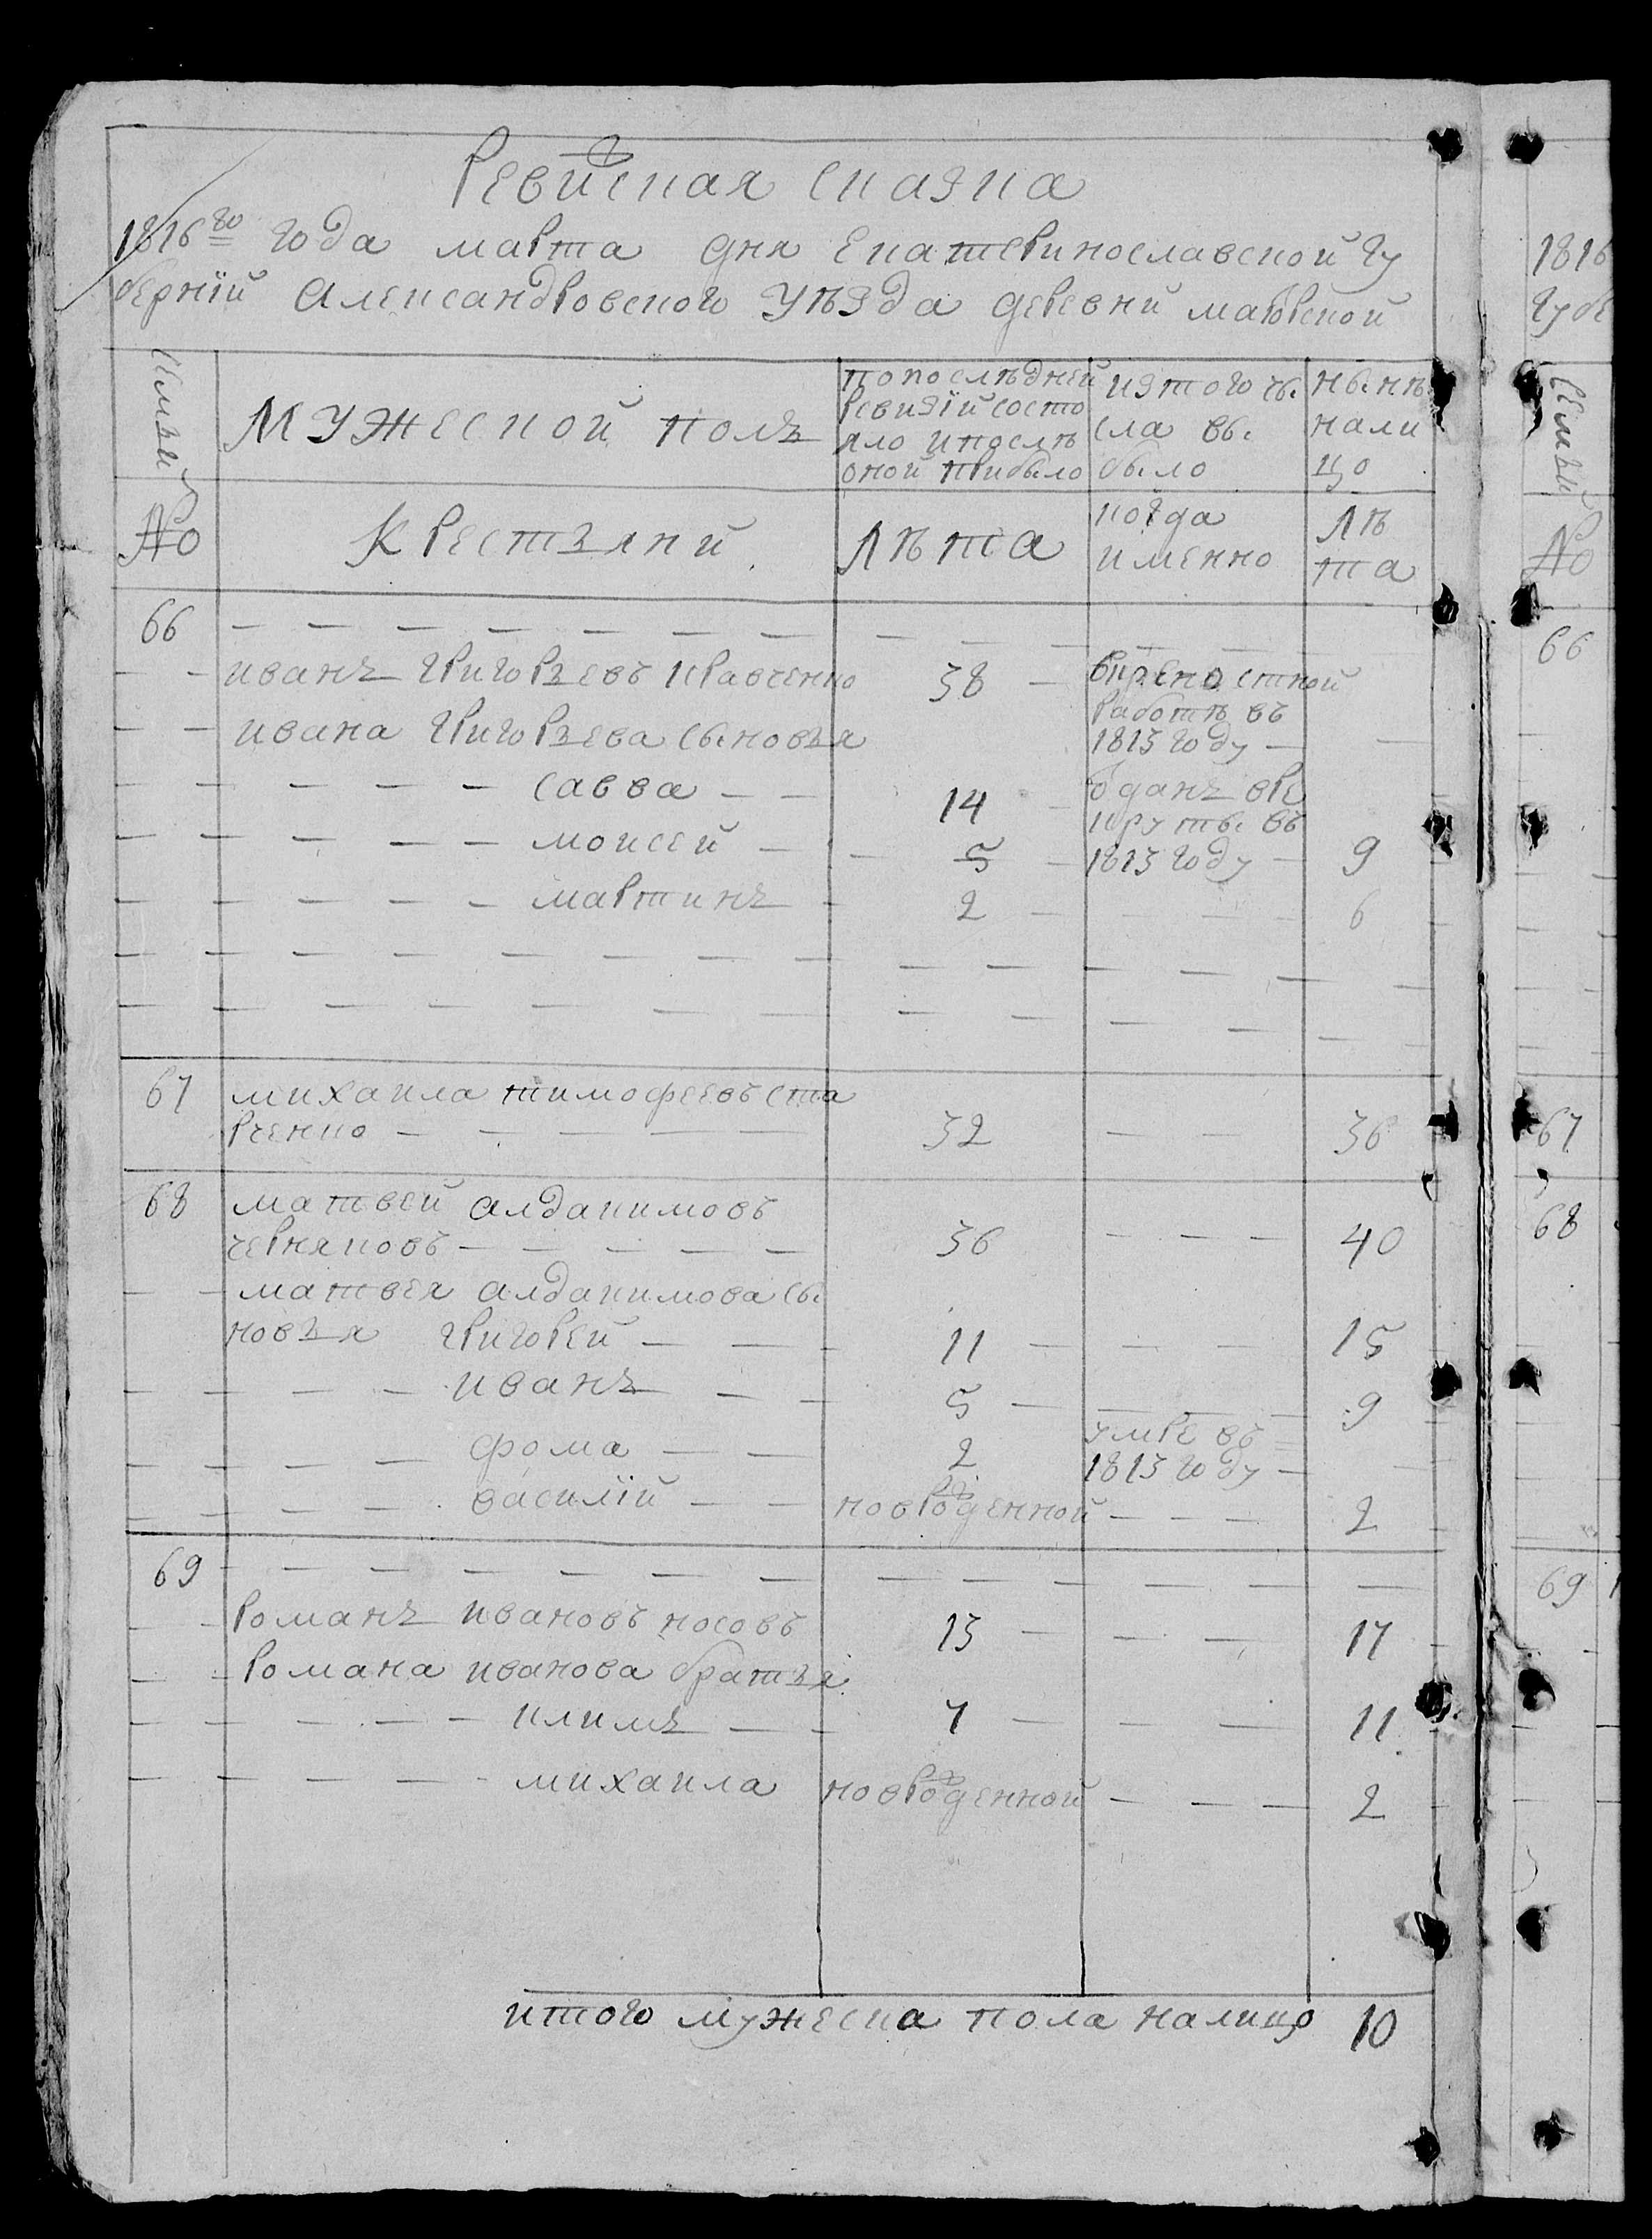 Ревизская сказка
1816го года марта дня Екатеринославской гу
берніи Александровского уѣзда деревни маюрской
семьи
мужеской полъ
по последней ревизіи состояло и после оной прибыло
из того числа выбыло
ныне на лицо
№
Крестьяни
лѣта
когда именно
лѣта
66
иванъ григорьевъ кравченко 38 в крепостной
работѣ въ
ивана григорьева сыновья 1813 году
савва 14 оданъ вре
круты въ
моисей 5 1813 году 9
мартинъ 2 6
67 михаила тимофеевъ ста
рченко 32 36
68 матвей алдакимовъ
черняковъ 36 40
матвея алдакимова сы
новья григорей 11 15
иванъ 5 9
фома 2 умре въ
1813 году
василій новорожденной 2
69
романъ ивановъ носовъ 13 17
романа иванова братья
климъ 7 11
михаила новорожденной 2
итого мужеска пола налицо 10
1816
губе
семьи
№
66
67
68
69